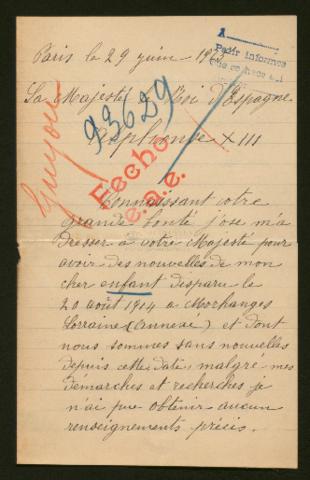 Paris le 29 juin 19
A
Pedir informes
Sa Majesté Roi d'Espagne
93629
Alphonse XIII
Guyon
Fecho
e.a.e.
Connaissant votre
grande bonté j'ose m'a
dresser à votre Majesté pour
avoir des nouvelles de mon
cher enfant disparu le
20 août 1914 a Morhanges
Lorraine (annexé) et dont
nous sommes sans nouvelles
depuis cette date, malgré mes
démarches et recherches je
n'ai pue obtenir aucun
renseignements précis.